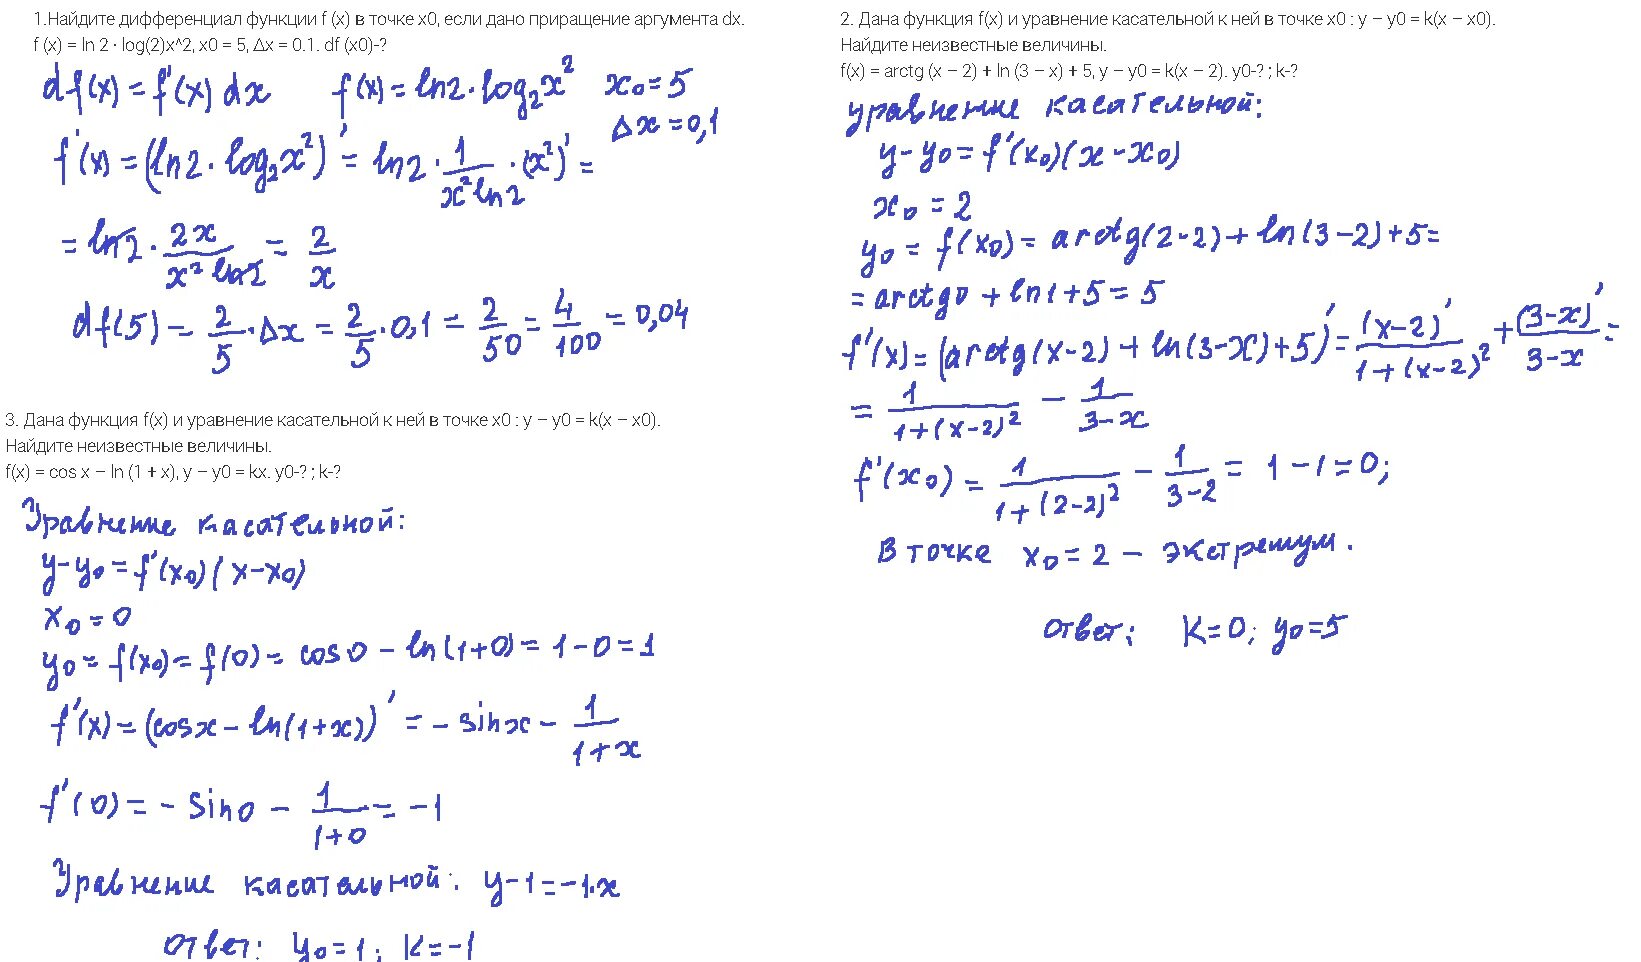 1.Найдите дифференциал функции f (x) в точке x0, если дано приращение аргумента dx.
f (x) = ln 2 · log(2)x^2, x0 = 5, Δx = 0.1. df (x0)-?
df(x) = f'(x) dx f(x) = ln2·log₂x² x₀ = 5
Δx = 0,1
f'(x) = (ln2·log₂x²)' = ln2 · 1/(x² ln2) · (x²)' =
= ln2 · 2x/(x² ln2) = 2/x
df(5) = 2/5 · Δx = 2/5 · 0,1 = 2/50 = 4/100 = 0,04
3. Дана функция f(x) и уравнение касательной к ней в точке x0 : y – y0 = k(x – x0).
Найдите неизвестные величины.
f(x) = cos x – ln (1 + x), y – y0 = kx. y0-? ; k-?
Уравнение касательной:
y-y₀ = f'(x₀)(x-x₀)
x₀ = 0
y₀ = f(x₀) = f(0) = cos0 - ln(1+0) = 1-0 = 1
f'(x) = (cosx - ln(1+x))' = - sinx - 1/(1+x)
f'(0) = - sin0 - 1/(1+0) = -1
Уравнение касательной: y-1 = -1·x
Ответ: y₀=1; K=-1
2. Дана функция f(x) и уравнение касательной к ней в точке x0 : y – y0 = k(x – x0).
Найдите неизвестные величины.
f(x) = arctg (x – 2) + ln (3 – x) + 5, y – y0 = k(x – 2). y0-? ; k-?
уравнение касательной:
y-y₀ = f'(x₀)(x-x₀)
x₀ = 2
y₀ = f(x₀) = arctg(2-2) + ln(3-2) + 5 =
= arctg0 + ln1 + 5 = 5
f'(x) = (arctg(x-2) + ln(3-x) + 5)' = (x-2)'/(1+(x-2)²) + (3-x)'/(3-x) =
= 1/(1+(x-2)²) - 1/(3-x)
f'(x₀) = 1/(1+(2-2)²) - 1/(3-2) = 1-1 = 0;
В точке x₀ = 2 - экстремум.
Ответ: K=0; y₀=5